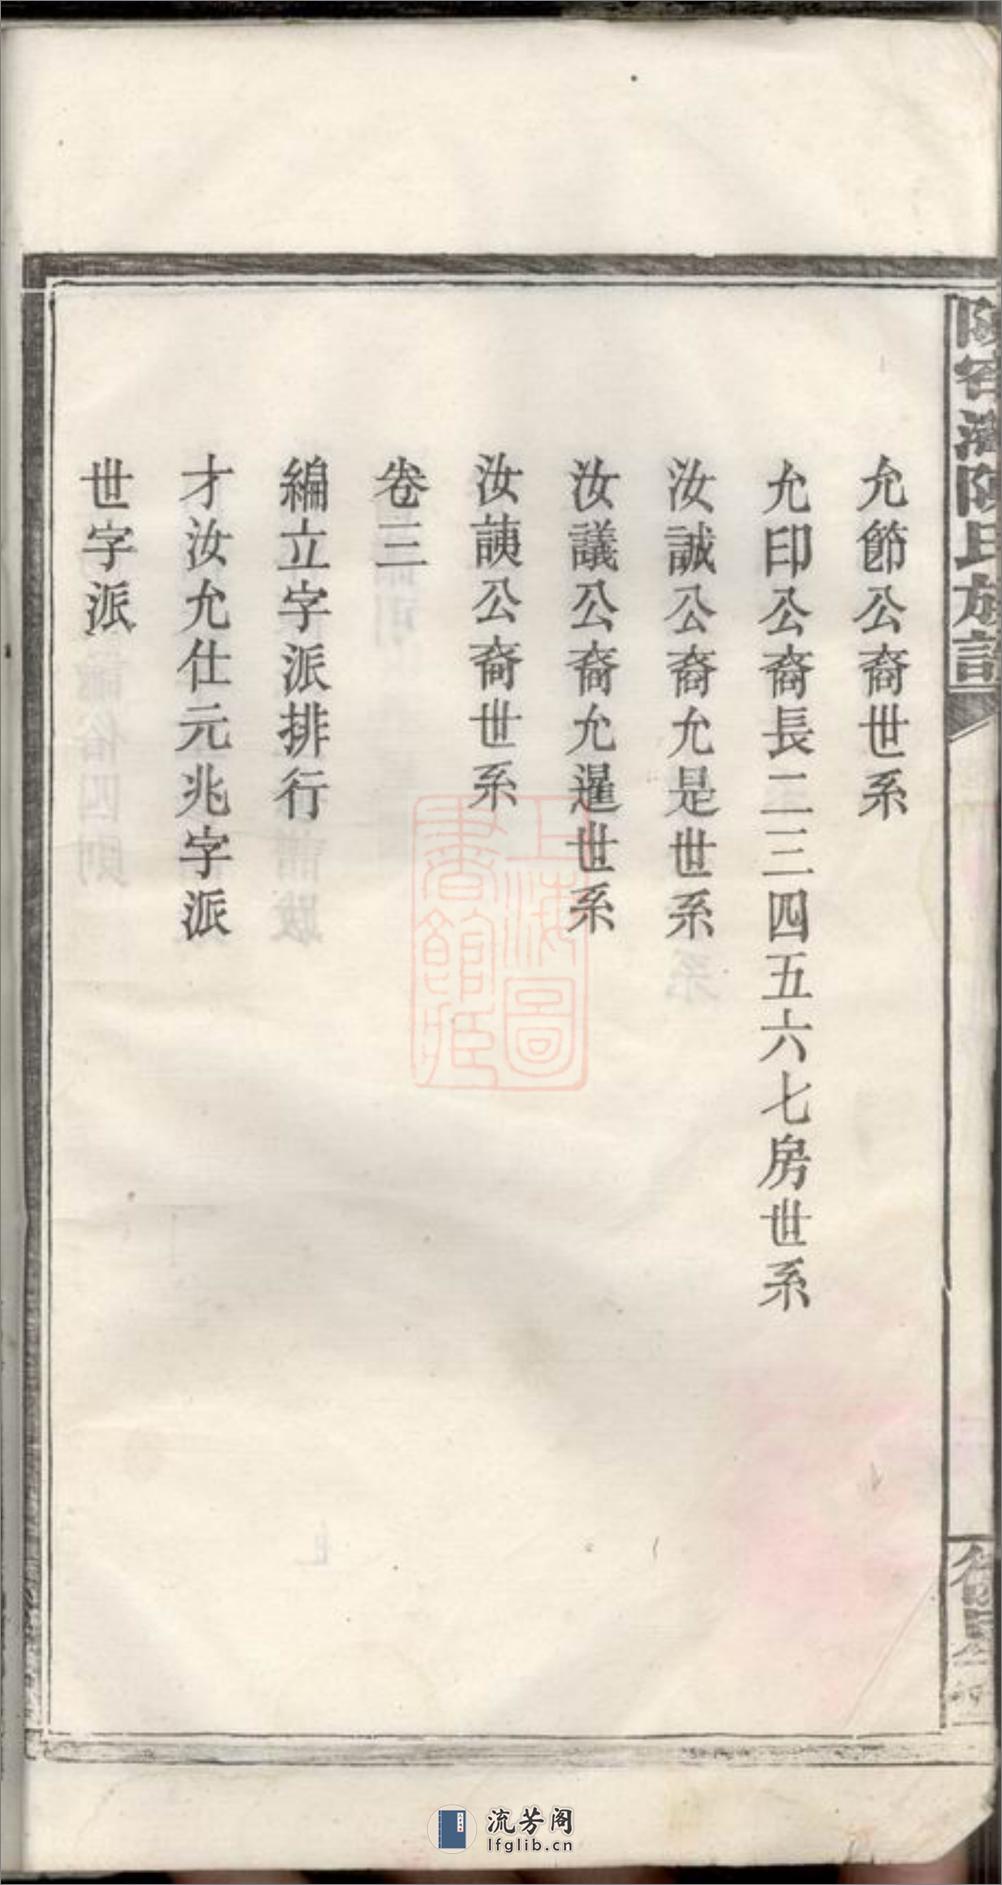 陳氏族譜
允節公裔世系
允印公裔長二三四五六七房世系
汝誠公裔允是世系
汝議公裔允暹世系
汝謨公裔世系
卷三
編立字派排行
才汝允仕元兆字派
世字派
上海圖書館藏
流芳阁
lfglib.cn